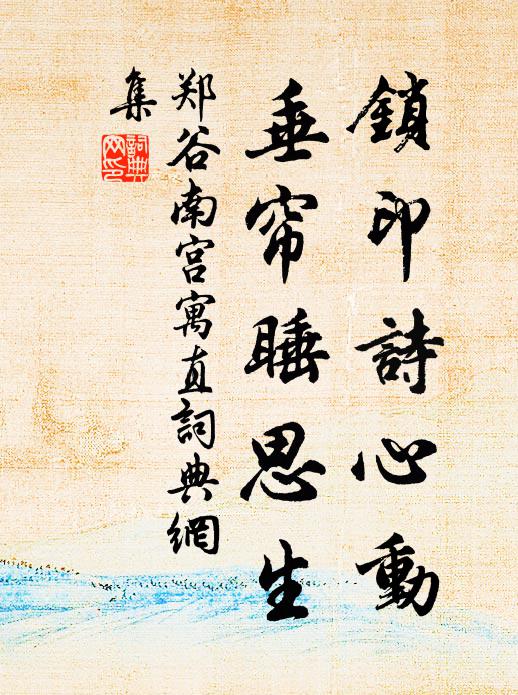 鎖印詩心動
垂帘睡思生
郑谷南宫寓直詞典網
集
詞典
网印